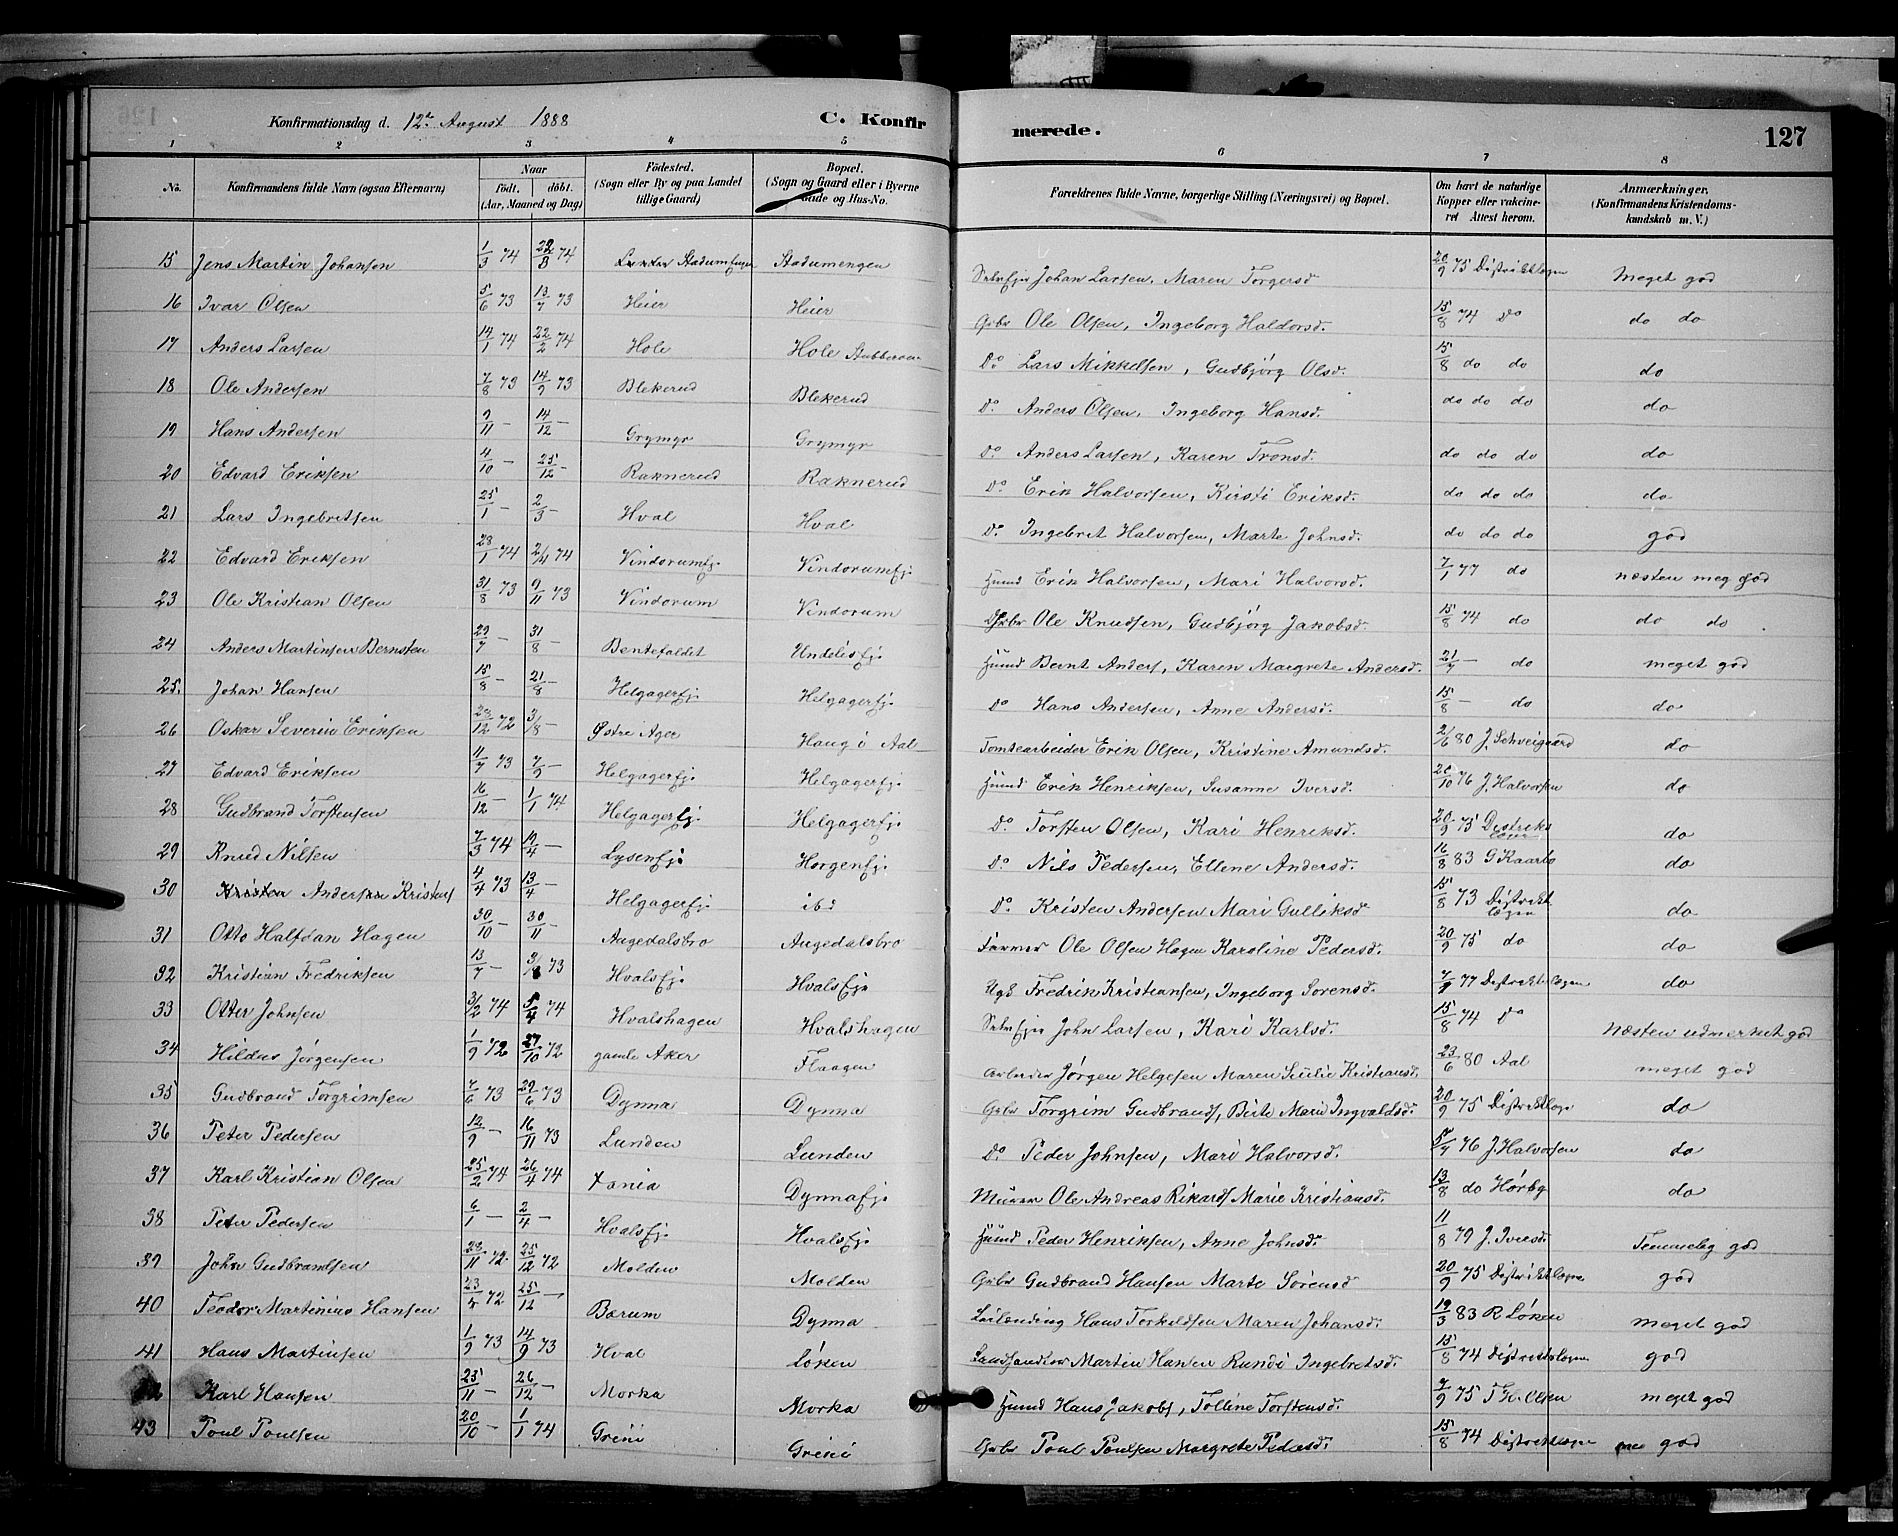 Konfirmationsdag d. 12te August 1888 C. Konfirmerede. 127
1 2 3 4 5 6 7 8
No. Konfirmandens fulde Navn (ogsaa Efternavn) Naar födt. döbt. (Aar, Maaned og Dag) Födested. (Sogn eller By og paa Landet tillige Gaard) Bopæl. (Sogn og Gaard eller i Byerne Gade og Hus-No. Forældrenes fulde Navne, borgerlige Stilling (Næringsvei) og Bopæl. Om havt de naturlige Kopper eller vakcineret Attest herom. Anmærkninger. (Konfirmandens Kristendomskundskab m. V.)
15 Jens Martin Johansen 1/3 74 22/3 74 Stadumengen Johan Larsen, Maren Torgersd 20/9 75 Distriktlægen Meget god
16 Ivar Olsen 5/6 73 13/7 73 Heier Heier Gbr Ole Olsen, Ingeborg Haldorsd. 15/8 74 Do do do
17 Anders Larsen 14/1 74 22/2 74 Hole Hole Do Lars Mikkelsen, Gudbjörg Olsd. 15/8 do do do
18 Ole Andersen 7/8 73 14/9 73 Blekerud Blekerud Do Anders Olsen, Ingeborg Hansd. do do do do
19 Hans Andersen 9/11 – 14/12 – Grymyr Grymyr Do Anders Larsen, Karen Tronsd. do do do do
20 Edvard Eriksen 4/10 – 25/12 – Raknerud Raknerud Do Erik Halvorsen, Kirsti Eriksd. do do do do
21 Lars Ingebretsen 25/1 – 2/3 – Hval Hval Do Ingebret Halvorsen, Marte Johnsd. do do do god
22 Edvard Eriksen 28/1 74 2/4 74 Vindorumej. Vindorumej. Husmd Erik Halvorsen, Mari Halvorsd. 7/1 77 do næsten meg god
23 Ole Kristian Olsen 31/8 73 9/11 73 Vindorum Vindorum Gbr Ole Knudsen, Gudbjörg Jakobsd. 15/8 74 do do do
24 Anders Martinsen Bernsten 29/7 – 31/8 – Bentefaldet Undelisej. Husmd Bernt Anders, Karen Margrete Andersd. 21/7 – do meget god
25. Johan Hansen 15/8 – 21/8 – Helgagerej. Helgagerej. Do Hans Andersen, Anne Andersd. 15/8 – do do
26 Oskar Severin Eriksen 28/12 72 3/8 – Østre Ager Haug i Aal Tomtearbeider Erik Olsen, Kristine Amundsd. 2/6 80 J. Schveigaard do
27 Edvard Eriksen 11/7 73 7/9 – Helgagerej. Helgagerej. Husmd Erik Henriksen, Susanne Iversd. 20/10 76 J. Halvorsen do
28 Gudbrand Torstensen 16/12 – 1/1 74 Helgagerej. Helgagerej. Do Torsten Olsen, Kari Henriksd. 20/9 75 do
29 Knud Nilsen 7/3 74 19/4 – Lysenej. Horgenej. Do Nils Pedersen, Ellene Andersd. 16/8 83 G Kaarbo do
30 Anders Kristens 4/4 73 13/4 – Helgagerej. ibd Do Kristen Andersen Mari Gulliksd 15/8 73 Distriktlægen do
31 Otto Halfdan Hagen 30/10 – 30/11 – Augedalsbro Augedalsbro Farver Ole Olsen Hagen Karoline Pedersd. 20/9 75 do do
32 Kristian Fredriksen 13/7 – 73 Hvalsej. Hvalsej. Ugb Fredrik Kristiansen, Ingeborg Sorensd. 77 Distriktslægen do
33 Otter Johnsen 3/2 74 5/4 74 Hvalshagen Hvalshagen John Larsen, Kari Karlsd. 15/8 74 Do Næsten udmerket god
34 Hildus Jørgensen 1/9 72 27/10 72 gamle Aker Flaagen Arbeider Jørgen Helgesen Maren Kristiansd. 23/6 80 Aal meget god
35 Gudbrand Torgrimsen 7/6 73 29/6 73 Dynna Dynna Gbr Torgrim Gudbrands, Birte Marie Ingvaldsd. 20/9 75 Distriktlæge do
36 Peter Pedersen 12/9 – 16/11 73 Lunden Lunden Do Peder Johnsen, Mari Halvorsd. 5/7 76 J. Halvorsen do
37 Karl Kristian Olsen 25/2 74 26/4 74 Xania Dynnaej. Murer Ole Andreas Rikards Marie Kristiansd. 13/8 do Hørby do
38 Peter Pedersen 6/1 – 2/4 – Hvalsej. Hvalsej. Husmd Peder Henriksen, Anne Johnsd. 11/8 79 J. Iversd. Temmelig god
39 John Gudbrandsen 28/11 72 25/12 72 Molden Molden Gbr Gudbrand Hansen Marte Sørensd 20/9 75 Distriktlægen god
40 Teodor Martinius Hansen 72 25/12 – Bærum Dynna Leilending Hans Torkildsen Maren Johansd. 19/3 83 R Løken meget god
41 Hans Martinsen 1/9 73 14/9 73 Hval Løken Landhandler Martin Hansen Rundi Ingebretsd. 15/8 74 Distriktslægen god
42 Karl Hansen 25/11 – 26/12 – Morka Morka Husmd Hans Jakobs, Tolline Torstensd. 7/9 75 Olsen meget god
43 Poul Poulsen 20/10 – 1/1 74 Grini Grini Gbr Poul Poulsen Margrete Pedersd. 15/8 74 Distriktlæge god